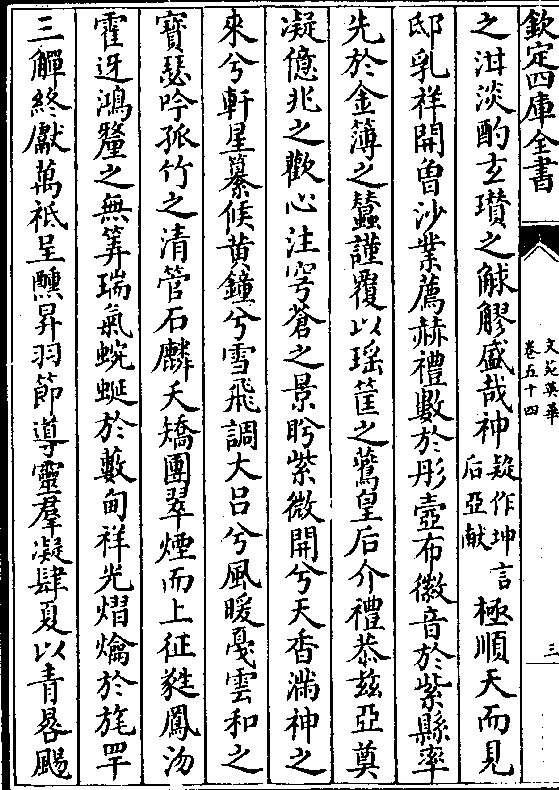 欽定四庫全書
文苑英華
卷五十四
三
之泔淡酌玄瓚之觩觺盛哉神疑作坤言后亞献極順天而見
邸乳祥開曽沙業薦赫禮數於彤壺布徽音於紫縣率
先於金簿之蠶謹覆以瑶筐之薦皇后介禮恭兹亞奠
凝億兆之歡心注穹蒼之景眄紫微開兮天香滿神之
來兮軒星纂候黄鐘兮雪飛調大吕兮風暖戛雲和之
寶瑟吟孤竹之清管石麟夭矯團翠煙而上征㲋鳳沕
霍迓鴻釐之無筭瑞氣蜿蜒於藪甸祥光熠爚於旄罕
三觶終獻萬祗呈醺昇羽節導靈羣凝肆夏以青晷颺